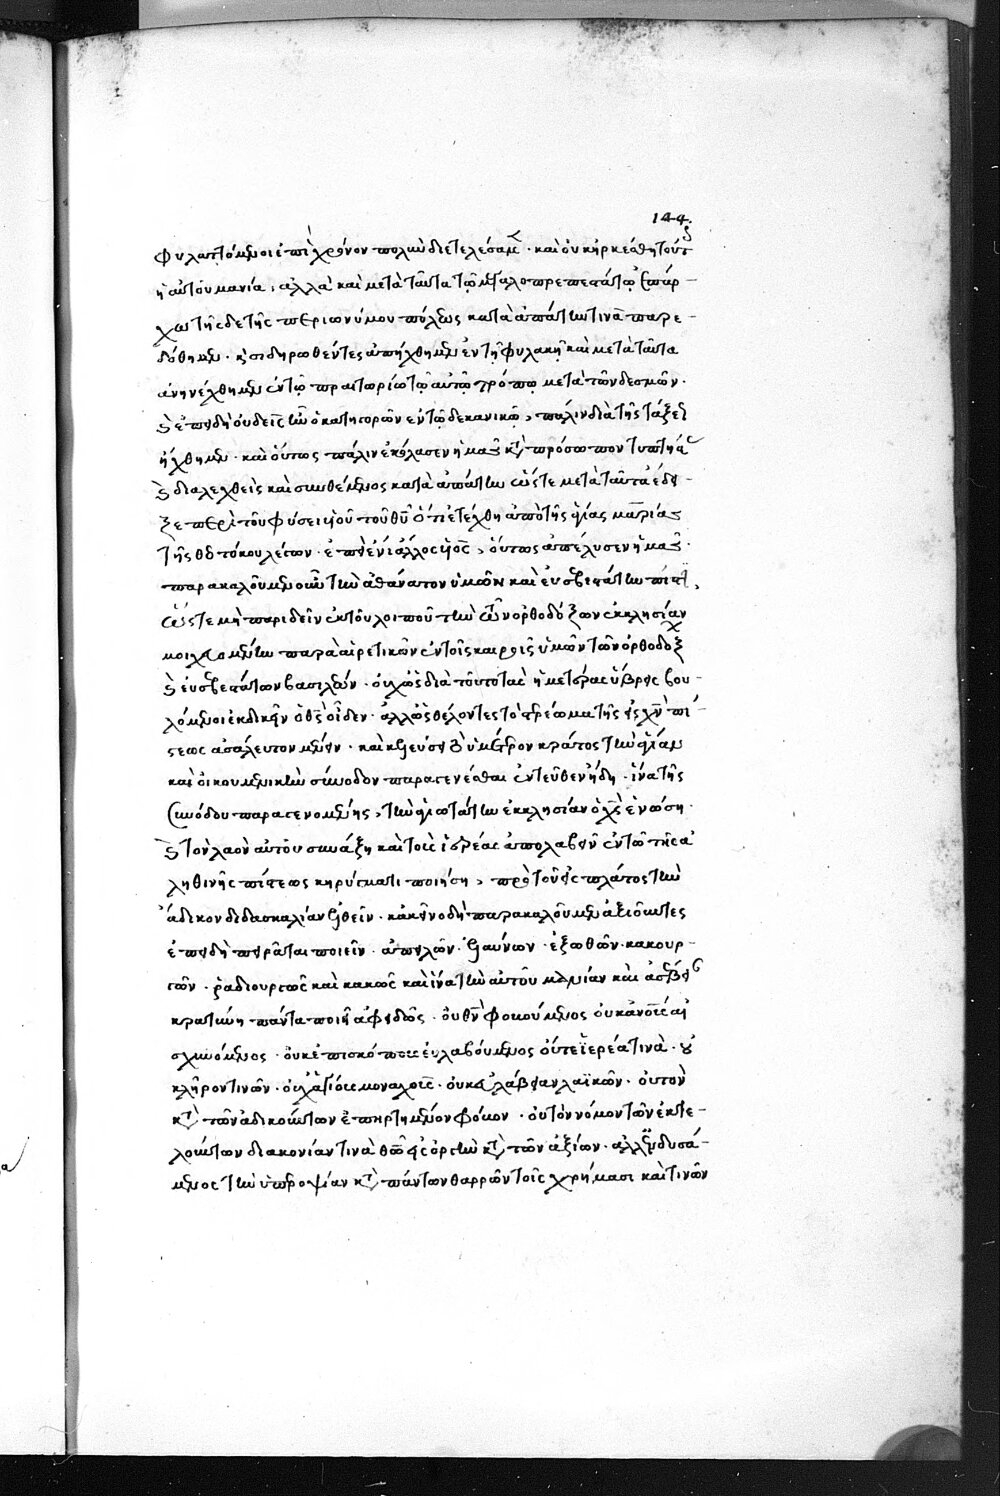 144.
φυλαττόμενοι ἐπὶ χρόνον πολὺν διετελέσαμεν · καὶ οὐκ ἠρκέσθη τούτοις
ἡ αὐτοῦ μανία, ἀλλὰ καὶ μετὰ ταῦτα τῷ μεγαλοπρεπεστάτῳ ἐπάρ-
χῳ τῆσδε τῆς περιωνύμου πόλεως κατὰ ἀπάτην τινὰ παρε-
δόθημεν · καὶ σιδηρωθέντες ἀπήχθημεν ἐν τῇ φυλακῇ καὶ μετὰ ταῦτα
ἀνηνέχθημεν ἐν τῷ πραιτωρίῳ τῷ αὐτῷ τρόπῳ μετὰ τῶν δεσμῶν ·
καὶ ἐπειδὴ οὐδεὶς ἦν ὁ κατηγορῶν ἐν τῷ δεκανικῷ, πάλιν διὰ τῆς τάξεως
ἤχθημεν · καὶ οὕτως πάλιν ἐκόλασεν ἡμᾶς κατὰ πρόσωπον τυπτήσας
καὶ διαλεχθεὶς καὶ συνθέμενος κατὰ ἀπάτην ὥστε μετὰ ταῦτα ἐδει-
ξε περὶ τοῦ φύσει υἱοῦ τοῦ θεοῦ ὅτι ἐτέχθη ἀπὸ τῆς ἁγίας μαρίας
τῆς θεοτόκου λέγων · ἐπεὶ ἐνὶ ἄλλος υἱὸς, οὕτως ἀπέλυσεν ἡμᾶς ·
παρακαλοῦμεν οὖν τὴν ἀθάνατον ὑμῶν καὶ εὐσεβεστάτην
ὥστε μὴ παριδεῖν ἐκ τοῦ λοιποῦ τὴν τῶν ὀρθοδόξων ἐκκλησίαν
μοιχευομένην παρὰ αἱρετικῶν ἐν τοῖς καιροῖς ὑμῶν τῶν ὀρθοδόξων
καὶ εὐσεβεστάτων βασιλέων · οὐχ ὡς διὰ τοῦτο τὰς ἡμετέρας ὕβρεις βου-
λόμενοι ἐκδικεῖν ὁ θεὸς οἶδεν · ἀλλ' ὡς θέλοντες τὸ στερέωμα τῆς εἰς χριστὸν πί-
στεως ἀσάλευτον μένειν · καὶ κελεύσει τὸ ὑμέτερον κράτος τὴν ἁγίαν
καὶ οἰκουμενικὴν σύνοδον παραγενέσθαι ἐντεῦθεν ἤδη · ἵνα τῆς
συνόδου παραγενομένης, τὴν ἁγιωτάτην ἐκκλησίαν ὁ χριστὸς ἑνώσῃ ·
καὶ τὸν λαὸν αὐτοῦ συνάξῃ καὶ τοὺς ἱερέας ἀπολαβεῖν ἐν τῷ τῆς ἀ
ληθινῆς πίστεως κηρύγματι ποιήσῃ, πρὸ τοῦ εἰς πλάτος τὴν
ἄδικον διδασκαλίαν ἐλθεῖν · κἀκεῖνο δὴ παρακαλοῦμεν ἀξιοῦντες
ἐπειδὴ πειρᾶται ποιεῖν · ἀπειλῶν · ἐλαύνων · ἐξωθῶν · κακουρ-
γῶν · ῥᾳδιουργῶς καὶ κακῶς καὶ ἵνα τὴν αὐτοῦ μανίαν καὶ ἀσέβειαν
κρατύνῃ πάντα ποιῇ ἀφειδῶς · οὐ θεὸν φοβούμενος οὐκ ἀνθρώπους αἰ
σχυνόμενος · οὐκ ἐπισκόπους εὐλαβούμενος οὔτε ἱερέα τινὰ · οὐ
κληρον τινῶν · οὐχ ἁγίους μοναχούς · οὐκ εὐλάβειαν λαϊκῶν · οὐ τὸν
κατὰ τῶν ἀδικούντων ἐπηρτημένον φόβον · οὐ τὸν νόμον τῶν ἐκτε-
λούντων διακονίαν τινὰ θεῷ εἰς ὀργὴν κατὰ τῶν ἀξίων · ἀλλ' ἐνδυσά-
μενος τὴν ὑπεροψίαν κατὰ πάντων θαρρῶν τοῖς χρήμασι καὶ τινῶν